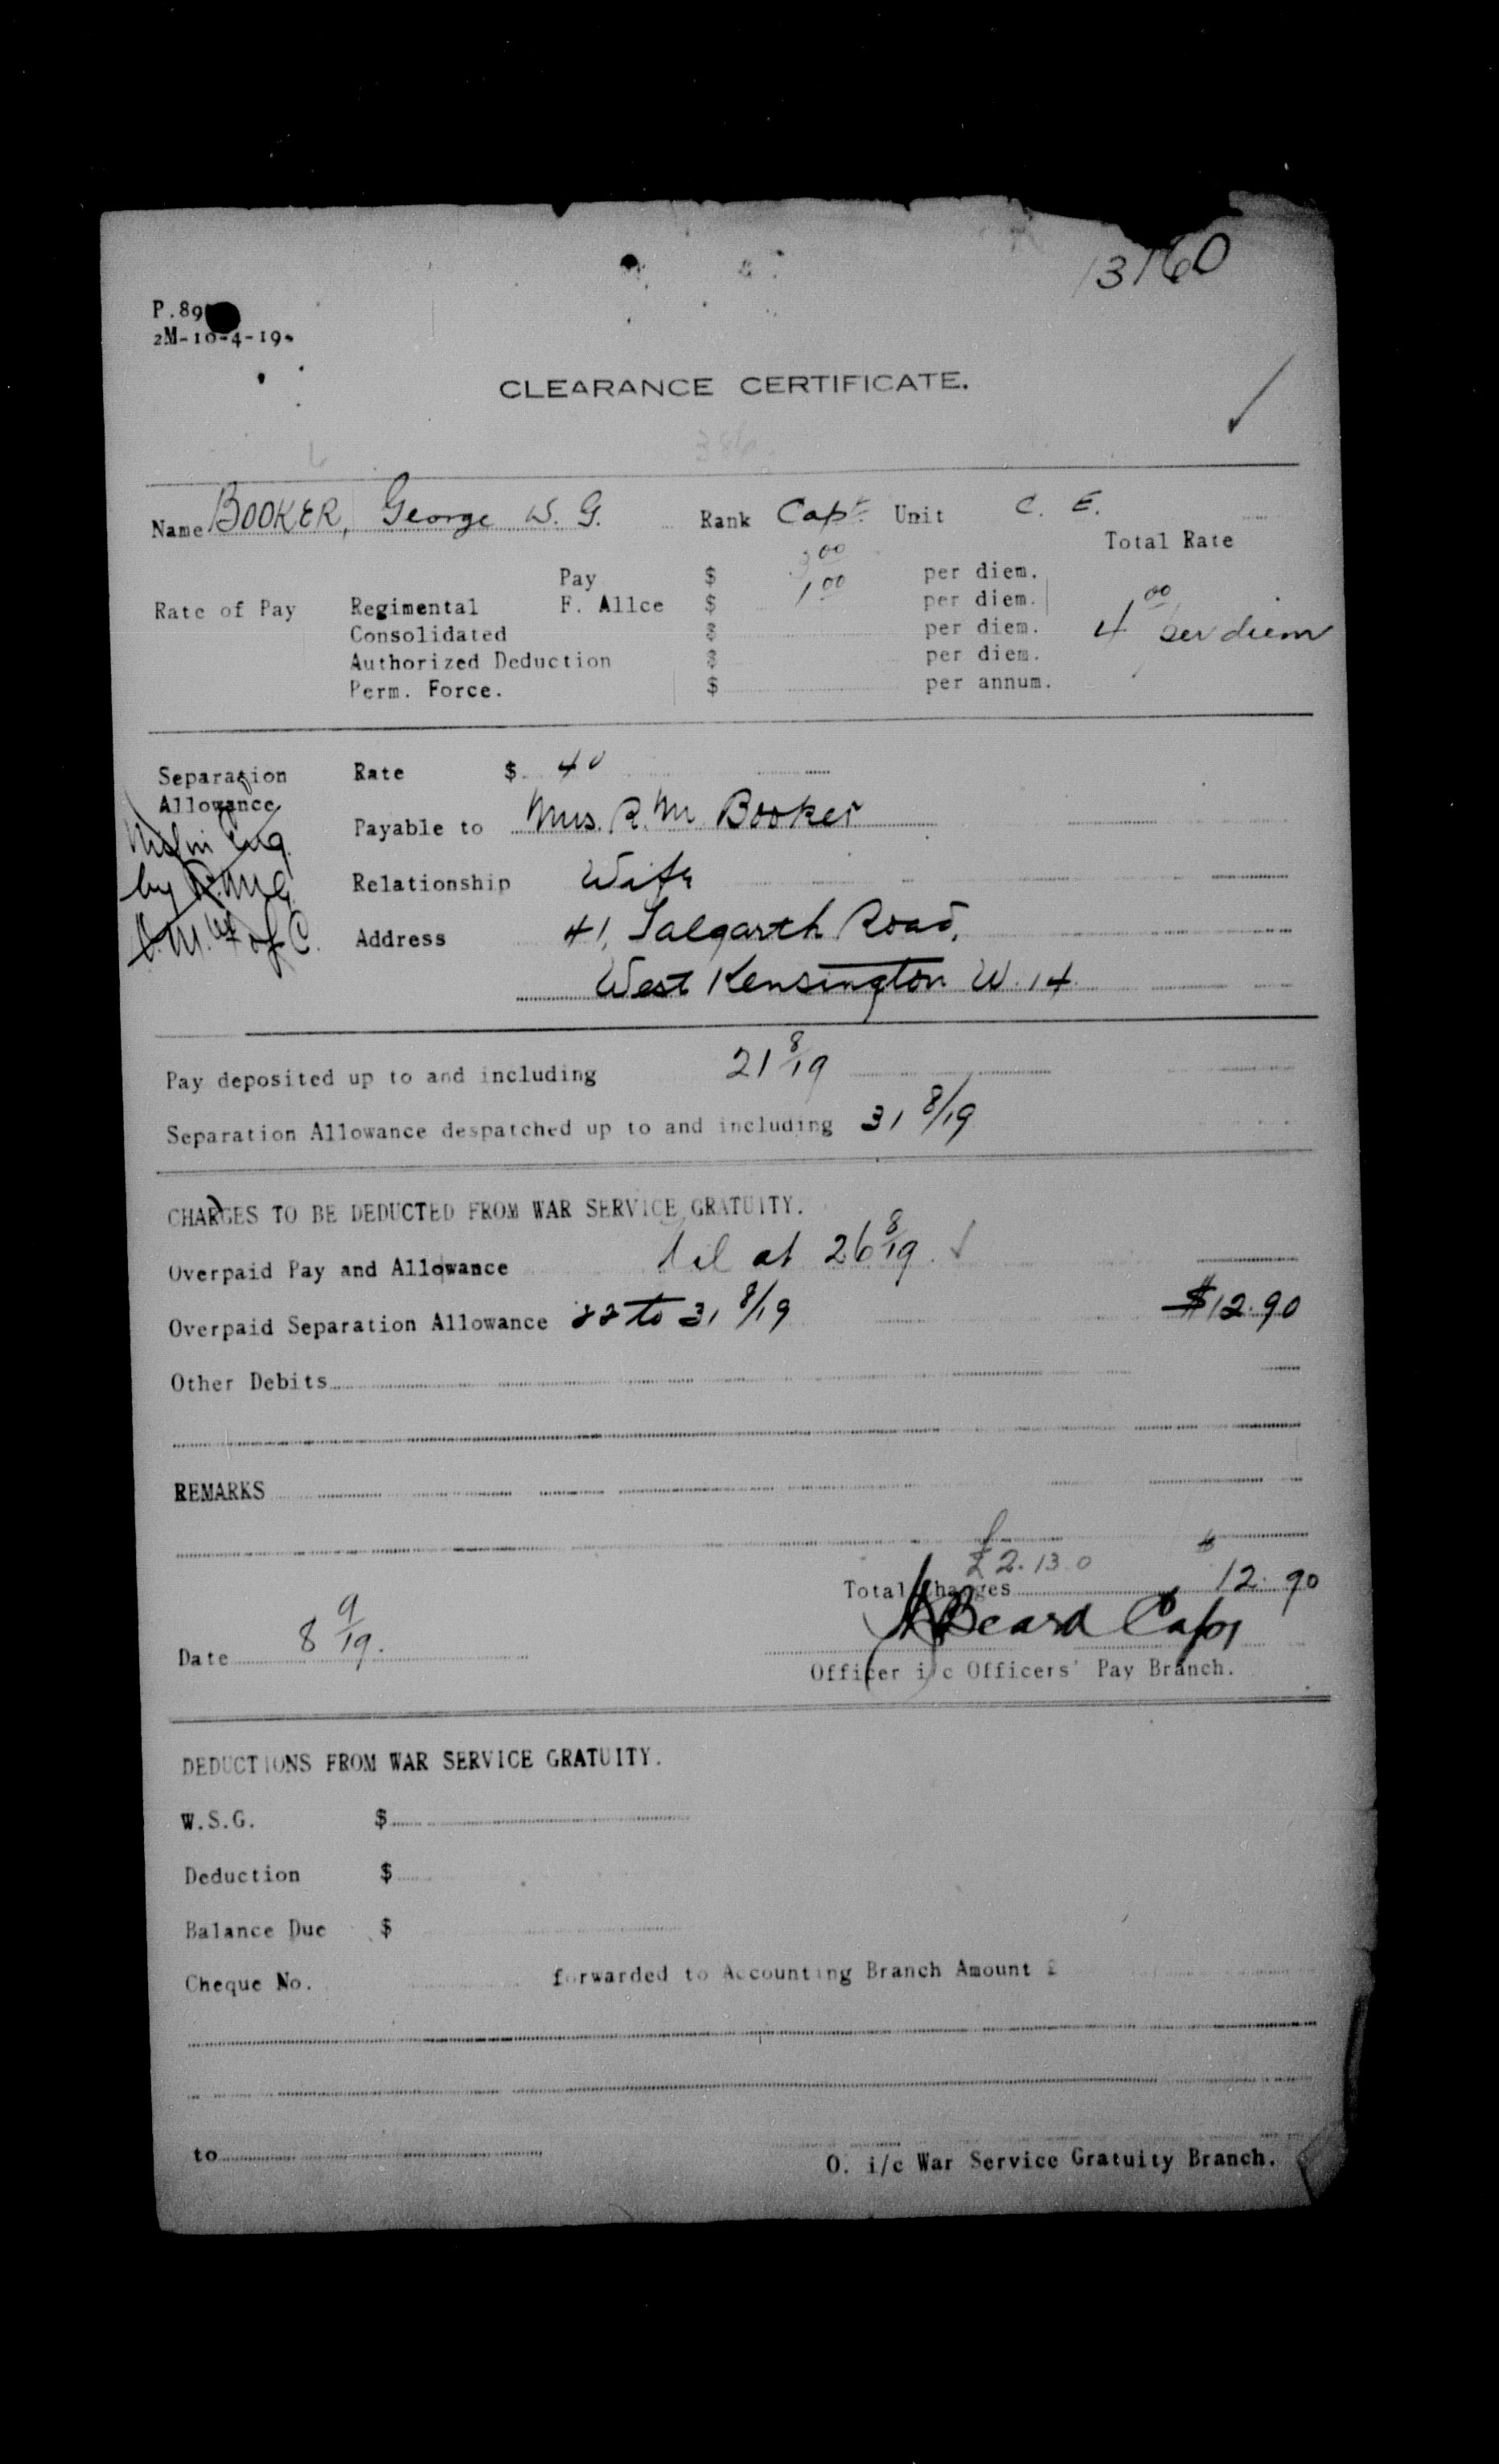 13160
P.89
2M-10-4-19.
CLEARANCE CERTIFICATE.
386
Name BOOKER, George W. G. Rank Capt. Unit C. E.
Total Rate
Pay $ 3.00 per diem.
Rate of Pay Regimental F. Allce $ 1.00 per diem. 4.00 per diem
Consolidated $ per diem.
Authorized Deduction $ per diem.
Perm. Force. $ per annum.
Separation Rate $ 40
Allowance
Payable to Mrs. R. M Booker
by
Relationship Wife
of C. Address 41, Talgarth Road,
West Kensington W. 14
Pay deposited up to and including 21 8/19
Separation Allowance despatched up to and including 31 8/19
CHARGES TO BE DEDUCTED FROM WAR SERVICE GRATUITY.
Overpaid Pay and Allowance Nil at 26 8/19
Overpaid Separation Allowance 22 to 31 8/19 $12.90
Other Debits
REMARKS
£ $
£2.13.0
Total Charges 12.90
Beard Capt
Date 8 9/19.
Officer i/c Officers' Pay Branch.
DEDUCTIONS FROM WAR SERVICE GRATUITY.
W.S.G. $
Deduction $
Balance Due $
Cheque No. forwarded to Accounting Branch Amount £
to
O. i/c War Service Gratuity Branch.